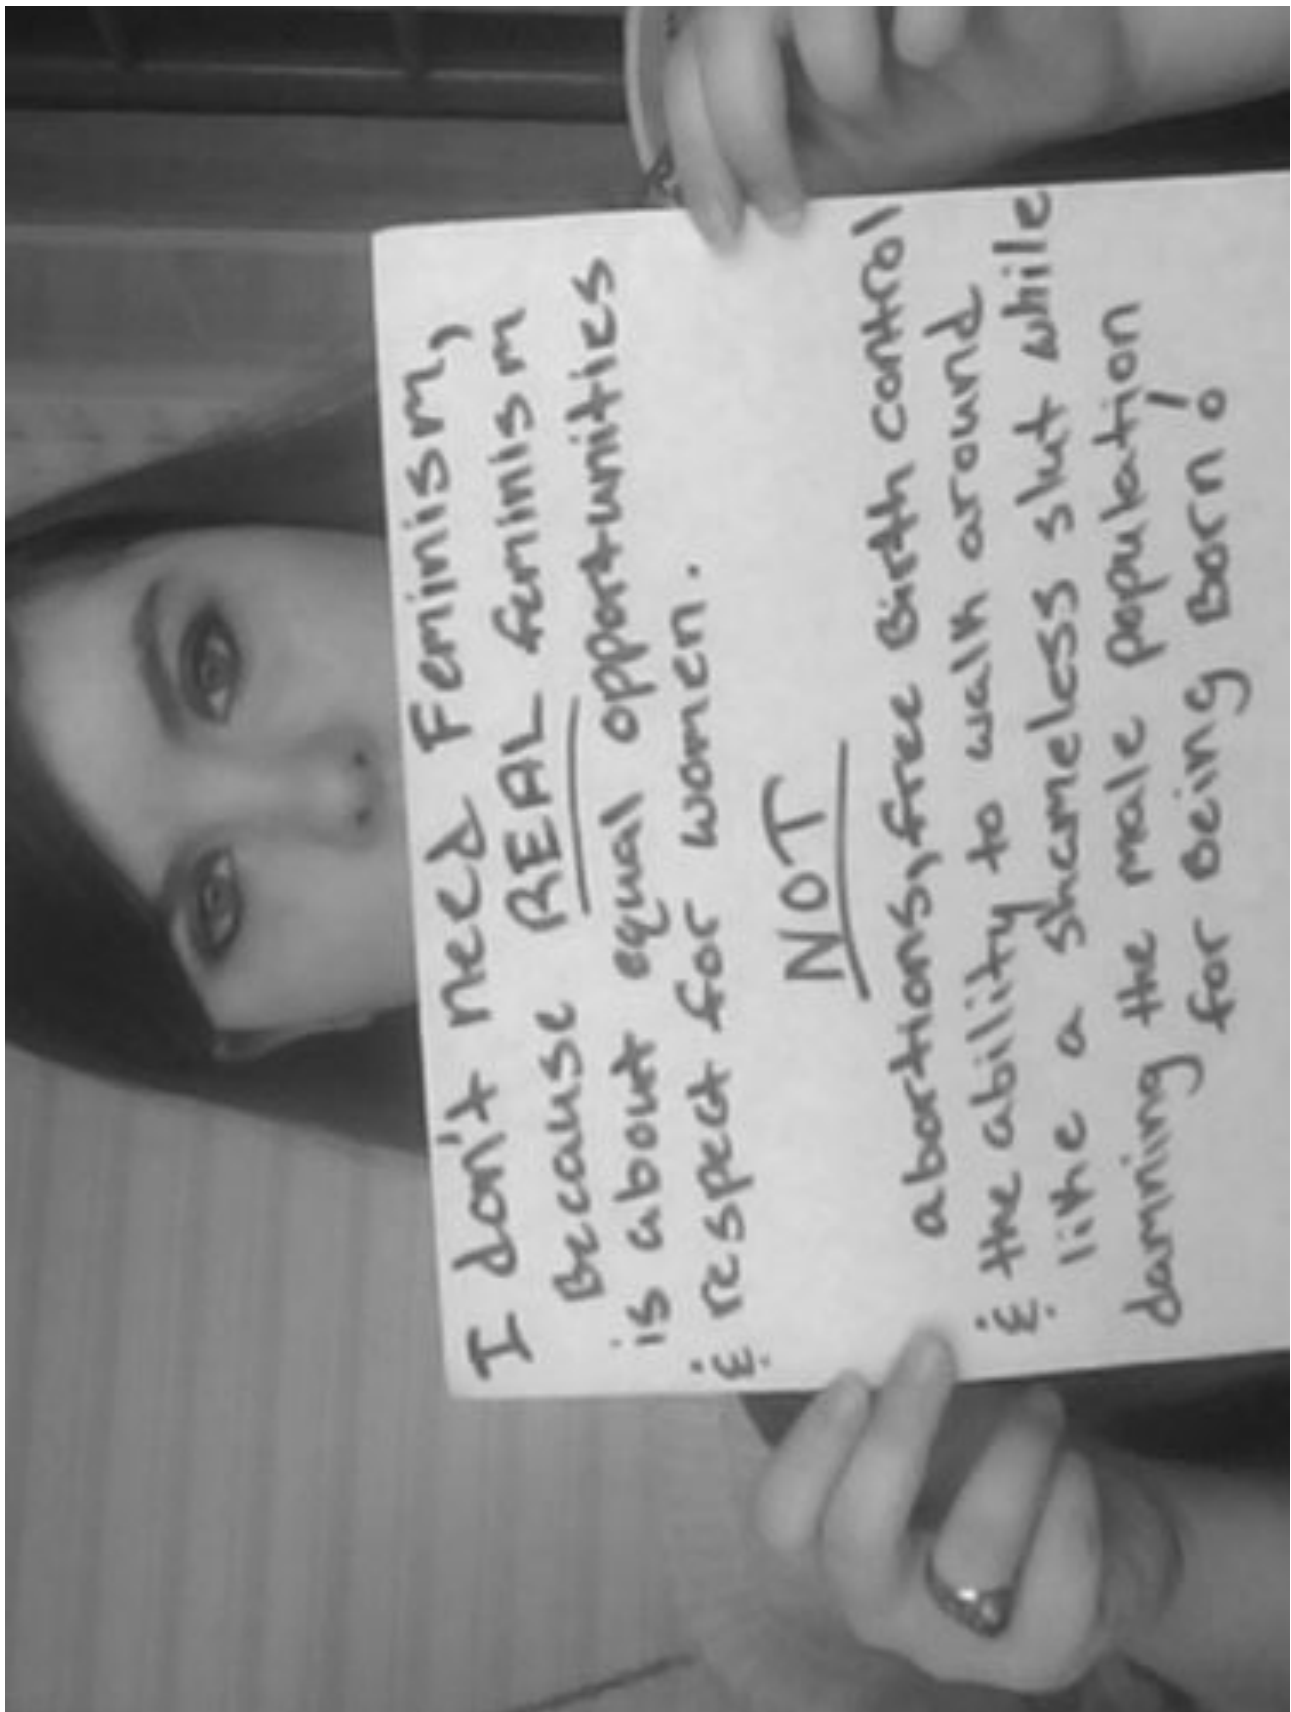 I don't need Feminism,
Because REAL feminism
is about equal opportunities
& respect for women.
NOT
abortions, free Birth control
& the ability to walk around
like a shameless slut while
damning the male population
for Being Born!